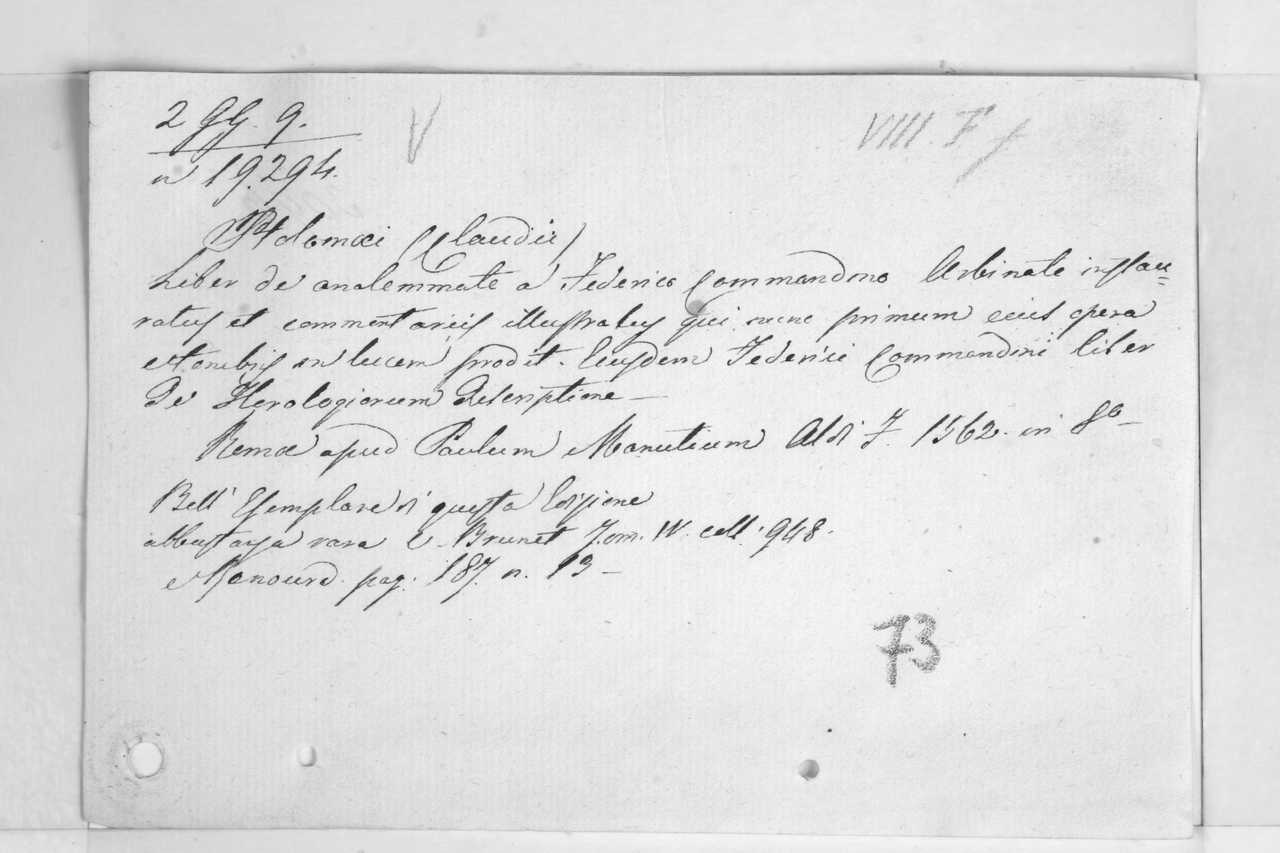 2 GG. 9.
V
VIII. F
n 19.294.
Ptolomæi (Claudii)
Liber de analemmate a Federico Commandino Urbinate instau=
ratus et commentariis illustratus qui nunc primum eius opera
e tenebris in lucem prodit. Eiusdem Federici Commandini liber
de Horologiorum descriptione —
Romæ apud Paulum Manutium Aldi F. 1562. in 8º —
Bell' Esemplare di questa Edizione
abbastanza rara V. Brunet Tom. IV. coll. 948.
Renouard. pag. 187. n. 13 —
73